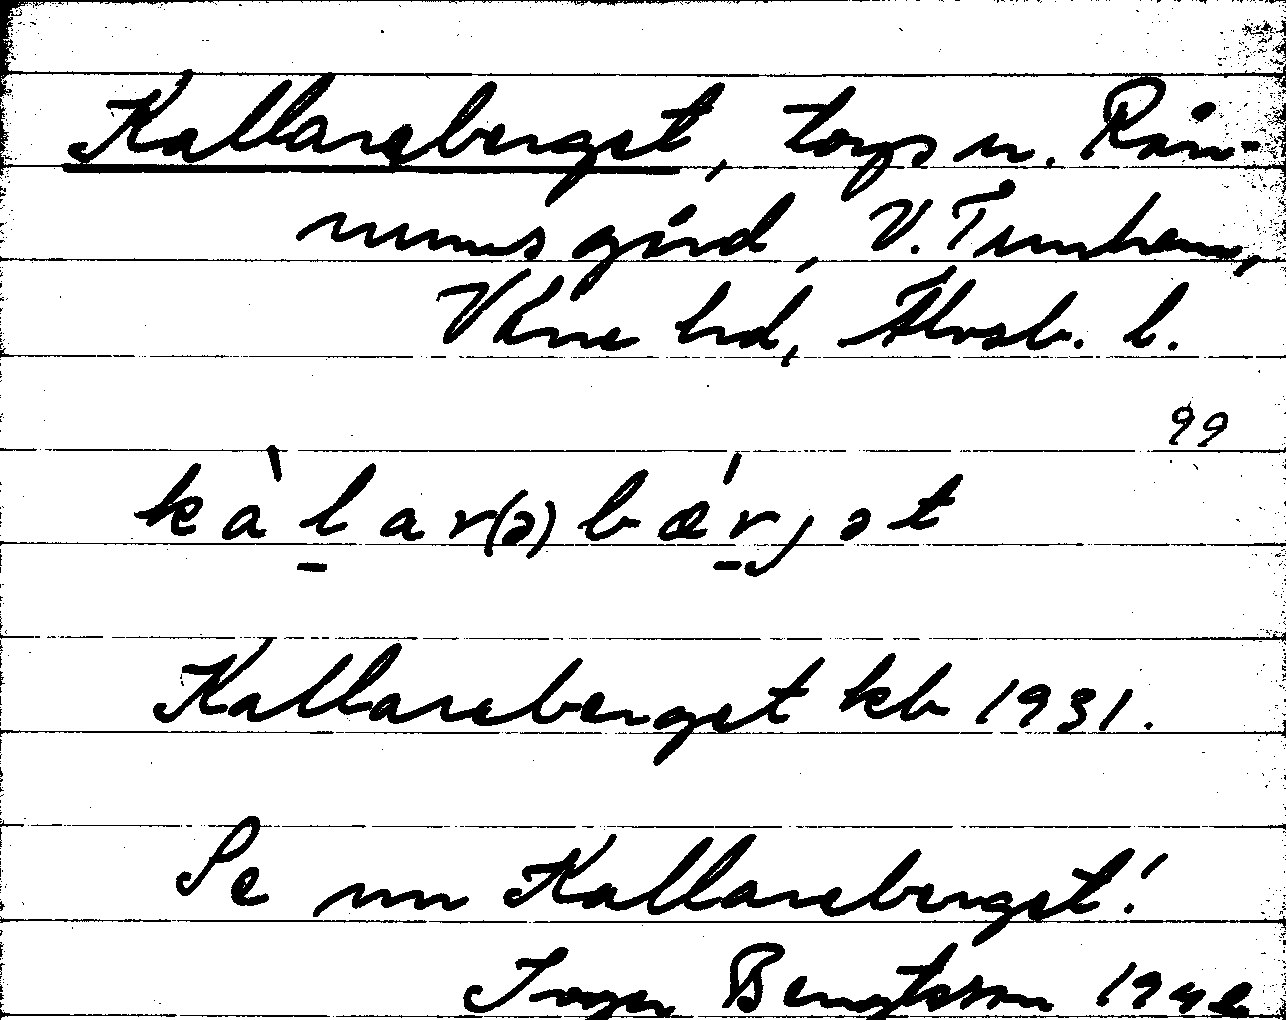 Kallareberget, torps u. Rån-
nums gård, V. Tunhem,
Väne hd, Älvsb. l.
99
kàḷar(ə)bæ̀ṛjət
Kallareberget kb 1931.
Se nn Kallareberget!
Inger Bengtsson 1942